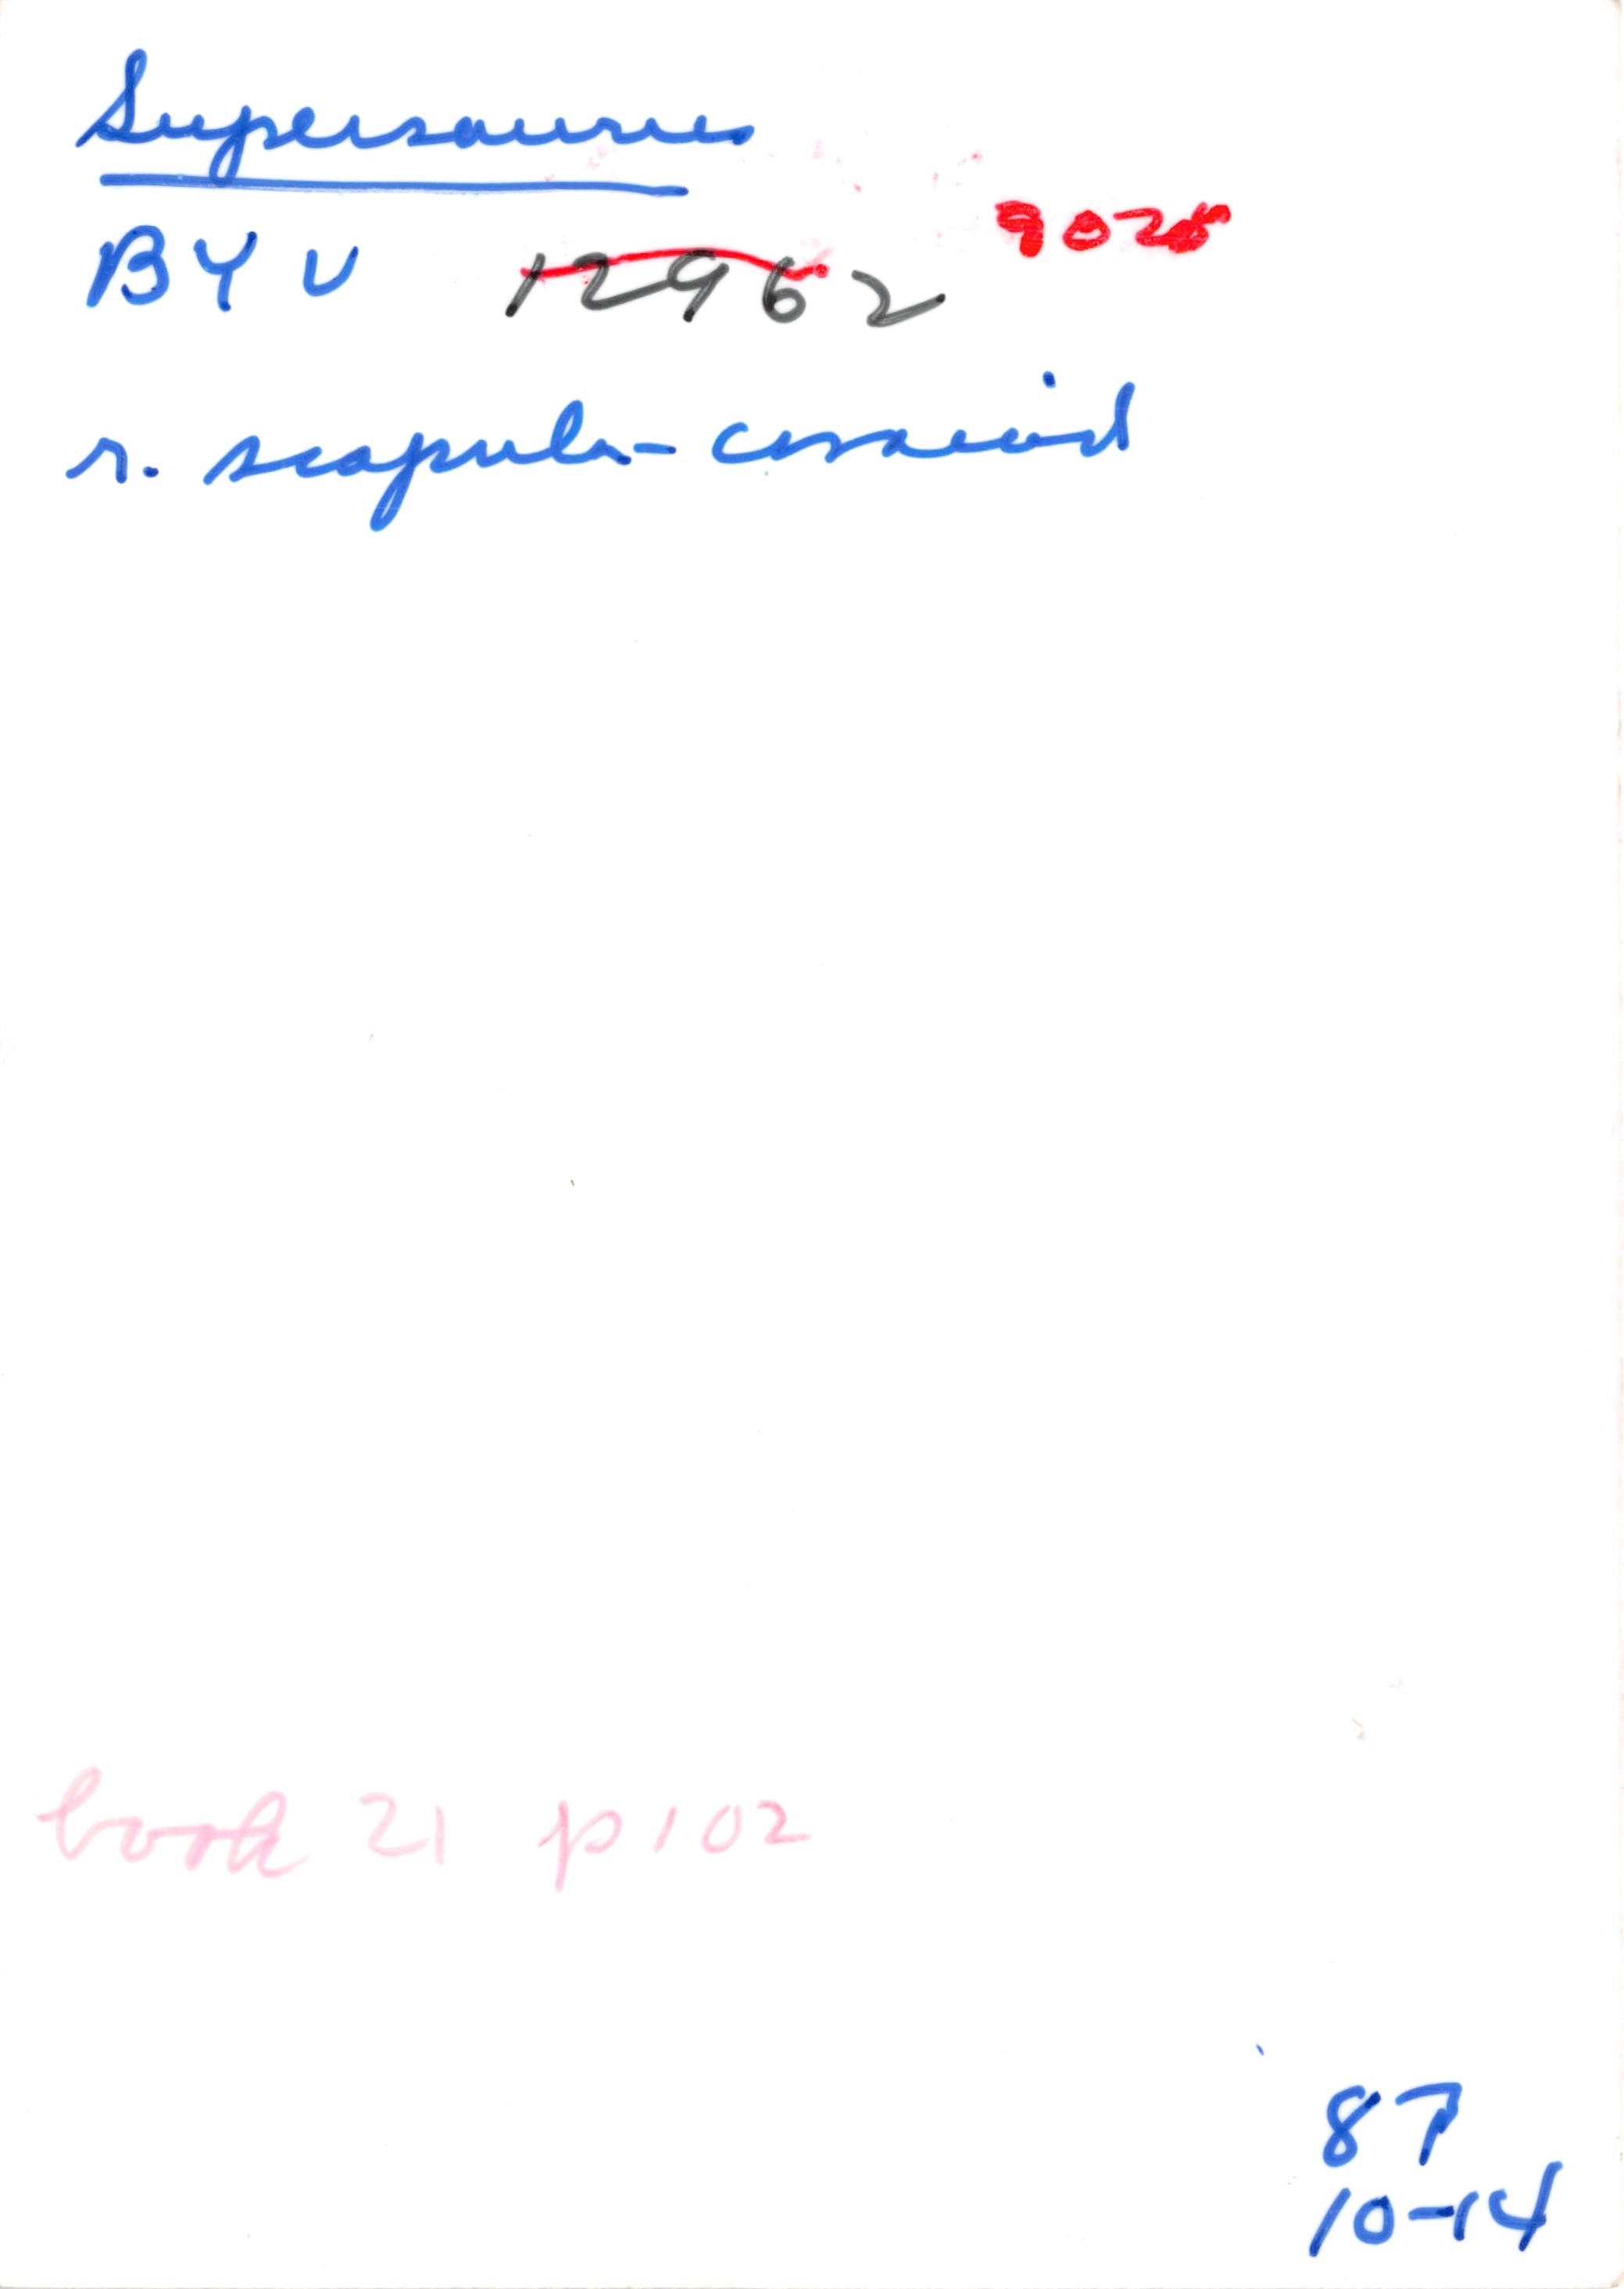 Supersaurus
BYU 12962 9025
r. scapula-coracoid
book 21 p102
87
10-14